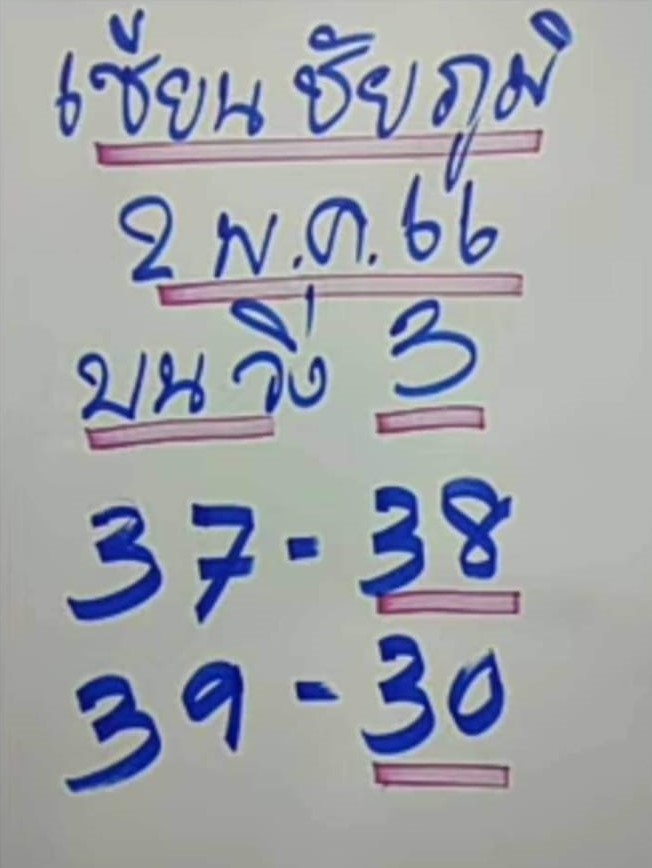 เซียน ชัยภูมิ
2 พ.ค. 66
บน วิ่ง 3
37 - 38
39 - 30